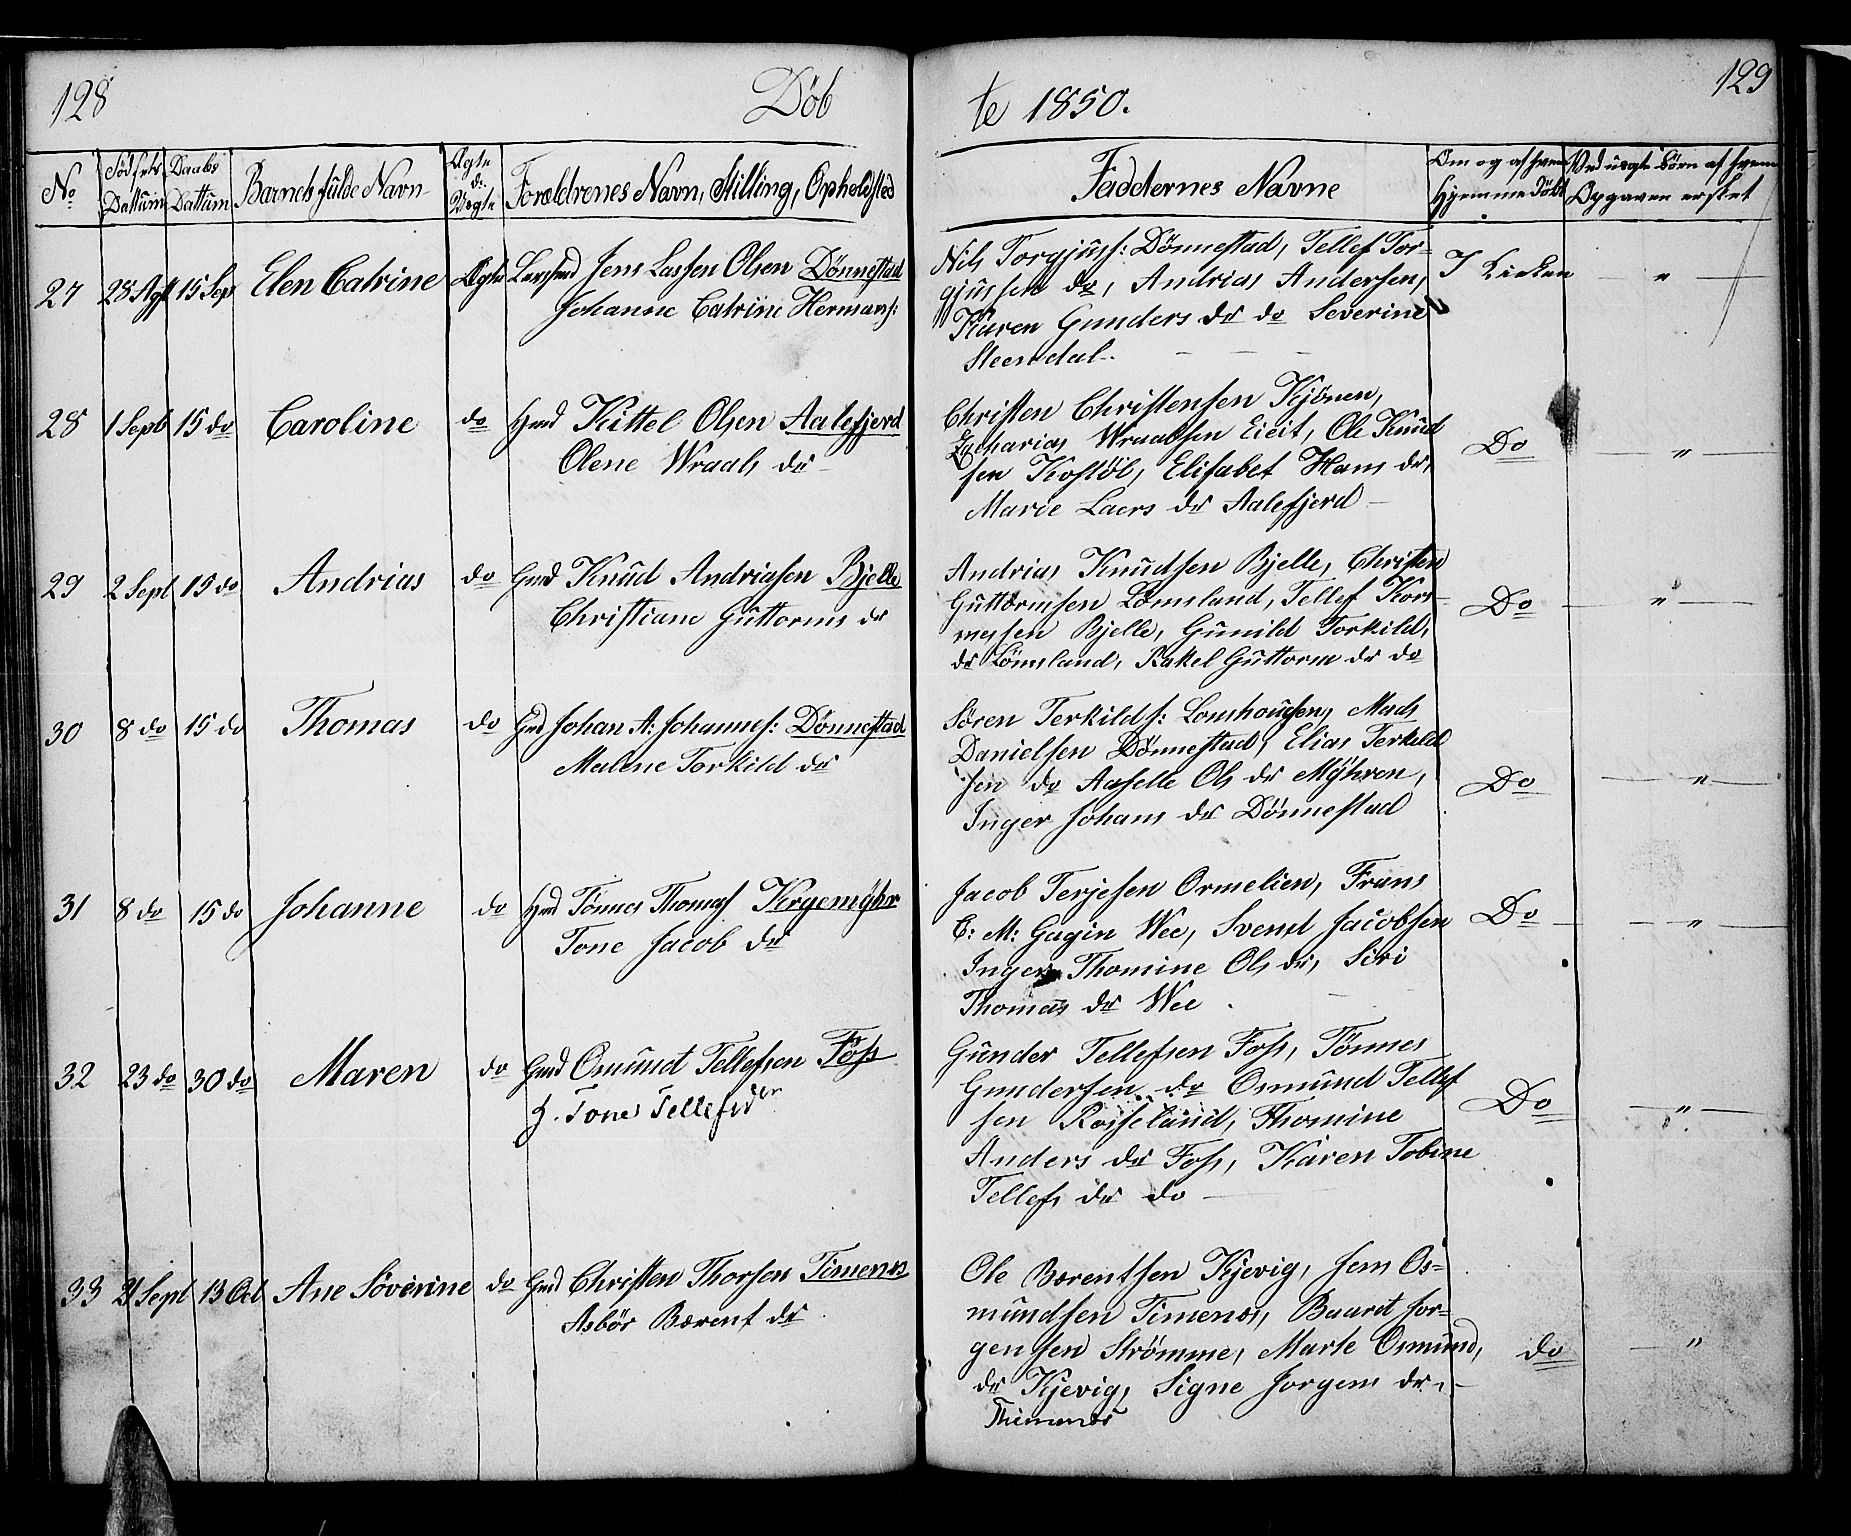 128
Döb
te 1850.
129
No
Födsels Dattum
Daabs Dattum
Barnets fulde Navn
Ægte el. Uægte
Forældrenes Navn, Stilling, Opholdsted
Faddernes Navne
Om og af hvem Hjemmedöbt
Ved uægte Börn af hvem Opgaven er sket
27 28 Agst 15 Sep Elen Catrine Ægte Jens Lassen Olsen Dönnestad
Johanne Catrine Hermans:
Nils Torgjuss: Dönnestad, Tellef Tor-
gjussen do, Andreas Andersen,
Karen Gunders dr do Severine
Steendal.
I Kirken "
28 1 Sept 15 do Caroline do Hmd Kittel Olsen Aalefjerd
Olene Wraals dr
Christen Christensen Kjönen,
Zacharias Wraalsen Eieit, Ole Knud
sen Kostöl, Elisabet Hans dr,
Marie Laers dr Aalefjerd
Do "
29 2 Sept 15 do Andrias do Gmd Knud Andriasen Bjelle
Christiane Guttorms dr
Andrias Knudsen Bjelle, Christen
Guttormsen Lömsland, Tellef Kors-
mosen Bjelle, Gunild Torkild,
dr Lömsland, Rakel Guttorm dr do
Do "
30 8 do 15 do Thomas do Gmd Johan A: Johannes: Dönnestad
Malene Torkild dr
Sören Terkilds: Lomhougen, Mads
Danielsen Dönnestad, Elias Terkild
sen do Aaselle Ols dr Mÿhren,
Inger Johans dr Dönnestad
Do "
31 8 do 15 do Johanne do Hmd Tönnes Thomas. Krgemÿhr
Tone Jacob dr
Jacob Terjesen Ormelien, Frans
C: M: Gagin Wee, Svend Jacobsen
Inger Thomine Ols dr, Siri
Thomas dr Wee
Do "
32 23 do 30 do Maren do Gmd Osmund Tellefsen Foss
H. Tone Tellefsdr
Gunder Tellefsen Foss, Tönnes
Gundersen do Osmund Tellef
sen Roiseland, Thomine
Anders dr Foss, Karen Tobine
Tellefs dr do
Do "
33 21 Sept 13 Oct Ane Söverine do Gmd Christen Thorsen Timenæs
Asbör Bærent dr
Ole Bærentsen Kjevig, Jens Os-
mundsen Timenæs, Baaret Jor-
gensen Strömme, Marte Osmund,
dr Kjevig, Signe Jorgens dr.
Thimenæs
do "